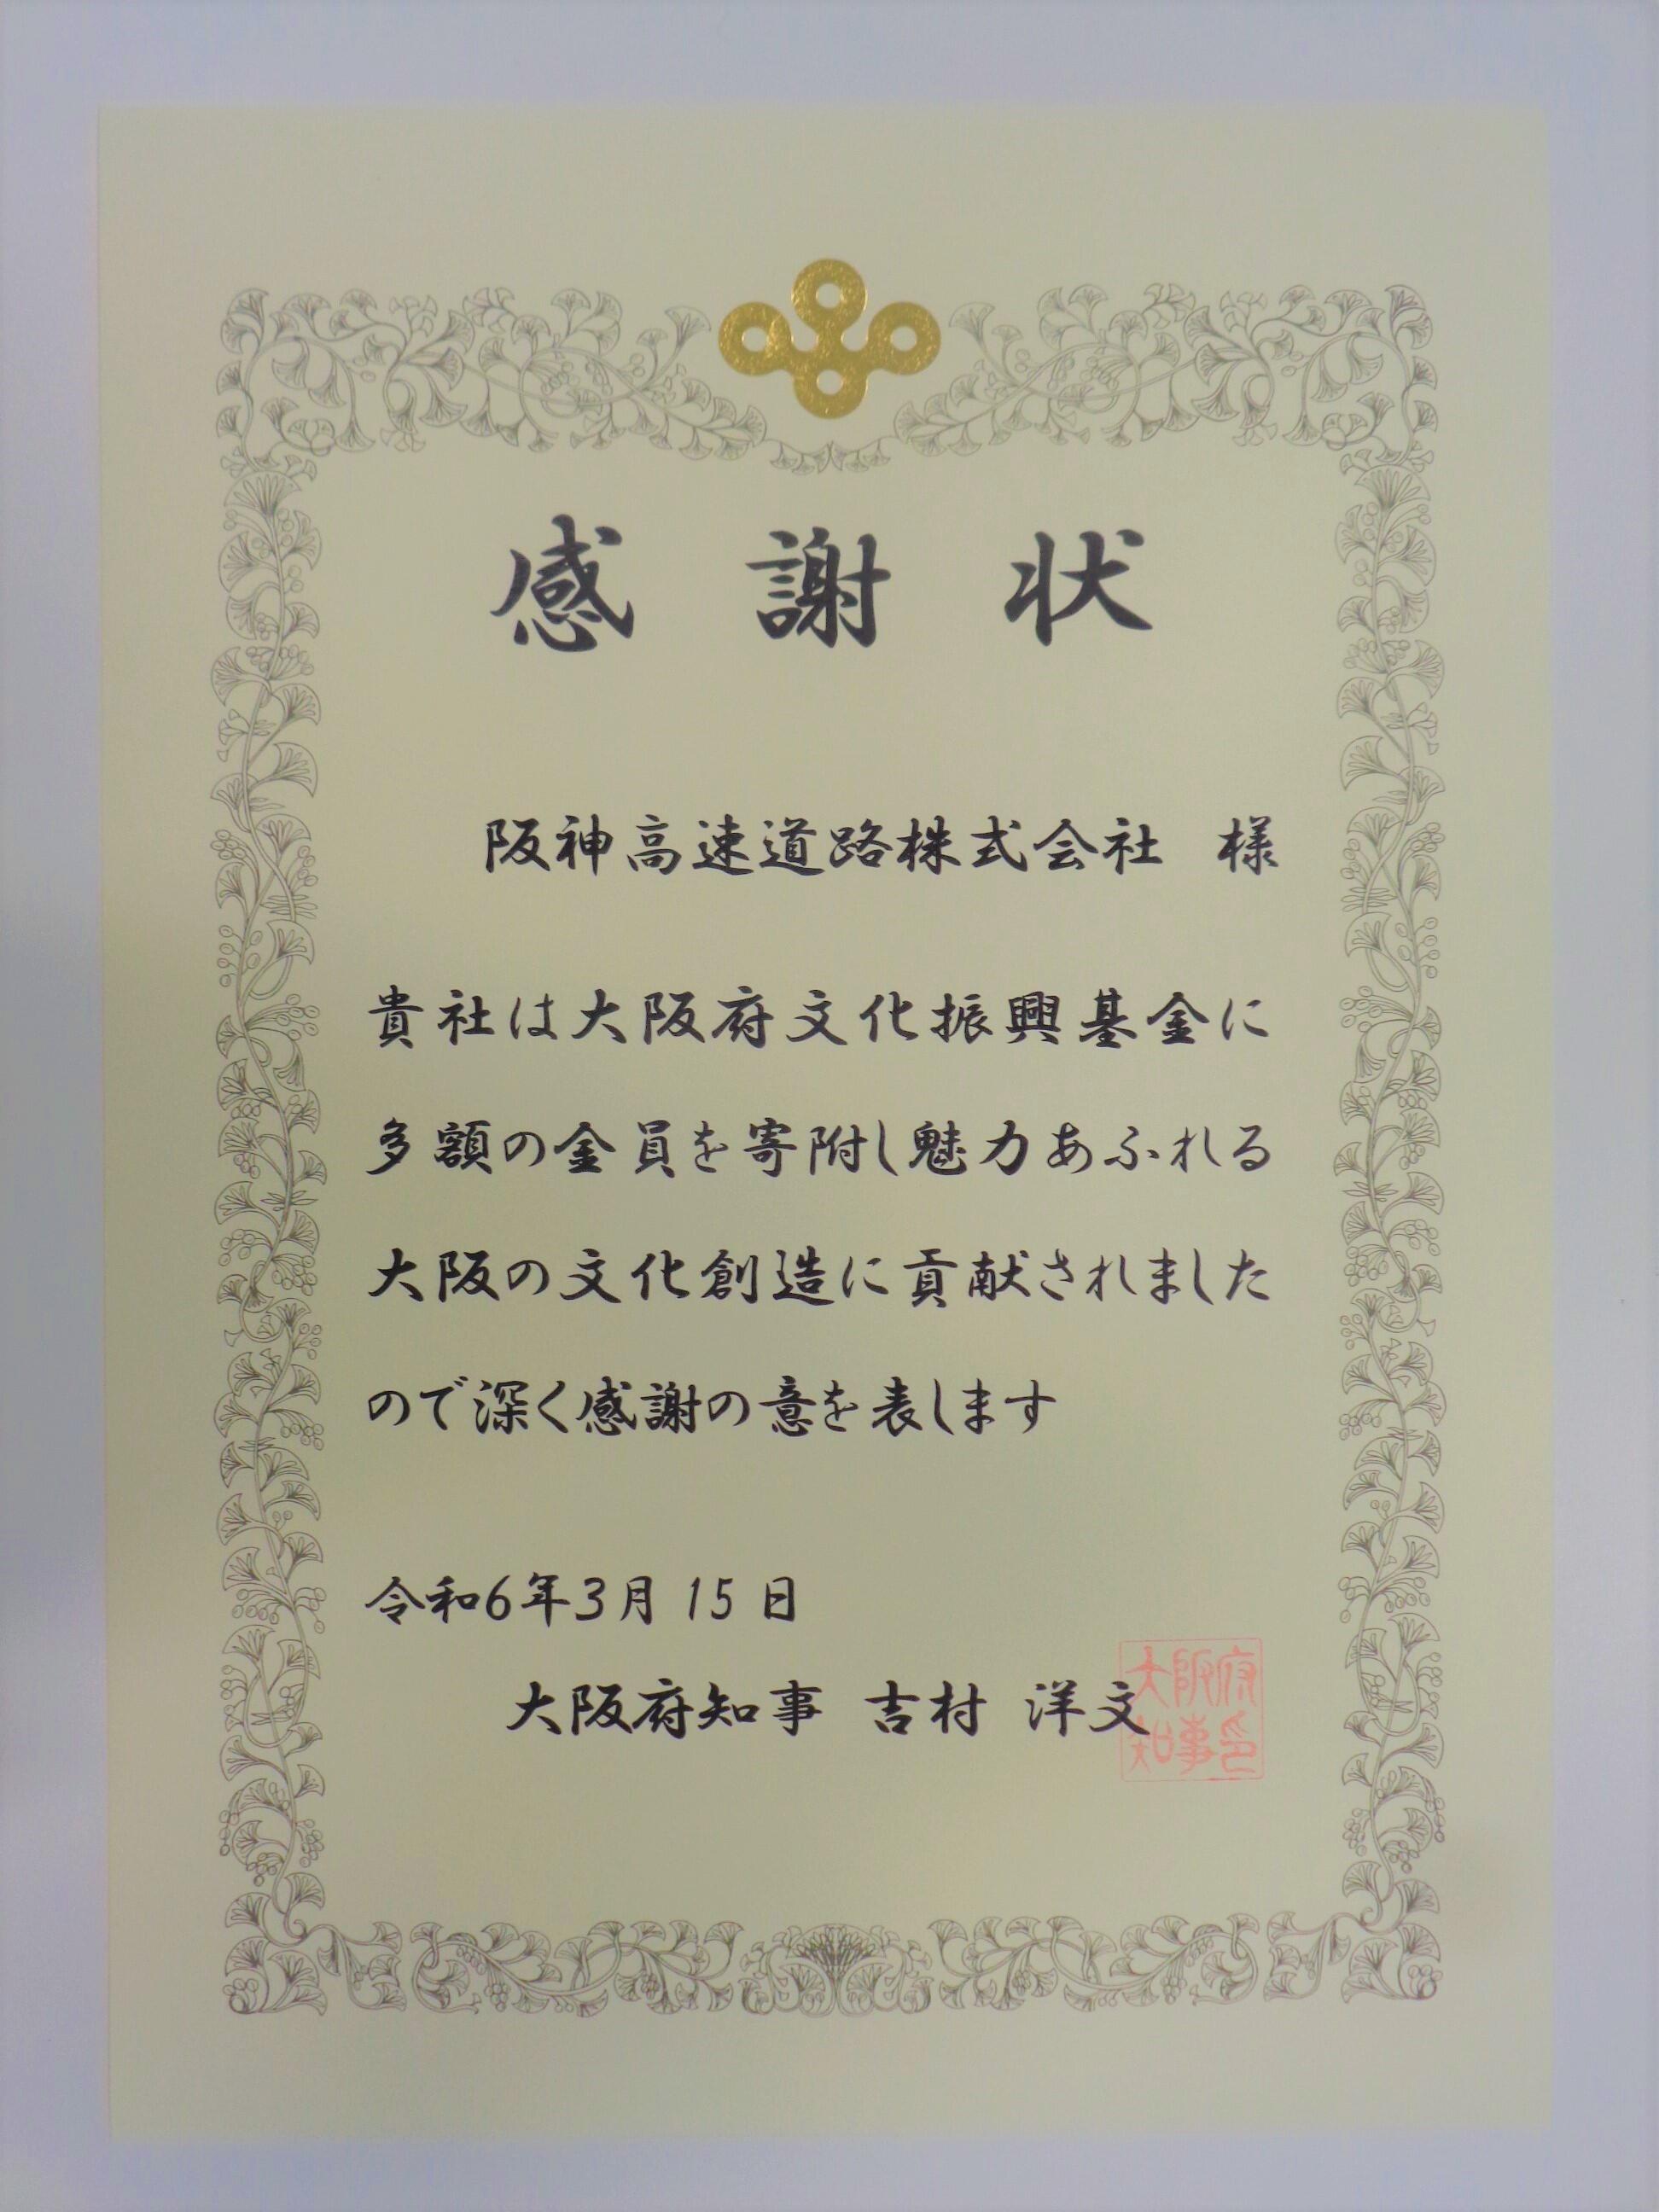 感謝状
阪神高速道路株式会社 様
貴社は大阪府文化振興基金に
多額の金員を寄附し魅力あふれる
大阪の文化創造に貢献されました
ので深く感謝の意を表します
令和6年3月15日
大阪府知事 吉村 洋文
大阪府
知事印